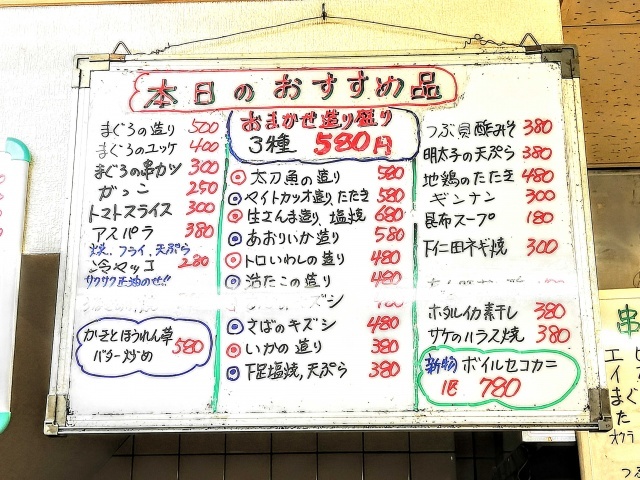 本日のおすすめ品
まぐろの造り 500
まぐろのユッケ 400
まぐろの串カツ 300
がっこ 250
トマトスライス 300
アスパラ 380
焼、フライ、天ぷら
冷マッコ 280
サクサク正油のせ!!
かきとほうれん草
バター炒め 580
おまかせ造り盛り
3種 580円
太刀魚の造り 580
マイトカツオ造り、たたき 580
生さんま造り、塩焼 680
あおりいか造り 580
トロいわしの造り 480
活たこの造り 480
キズシ
さばのキズシ 480
いかの造り 380
下足塩焼、天ぷら 380
つぶ貝酢みそ 380
明太子の天ぷら 380
地鶏のたたき 480
ギンナン 300
昆布スープ 180
下仁田ネギ焼 300
ホタルイカ素干し 380
サケのハラス焼 380
新物 ボイルセコカニ
1匹 780
串
エ
イ
まぐ
た
オクラ
つぶ